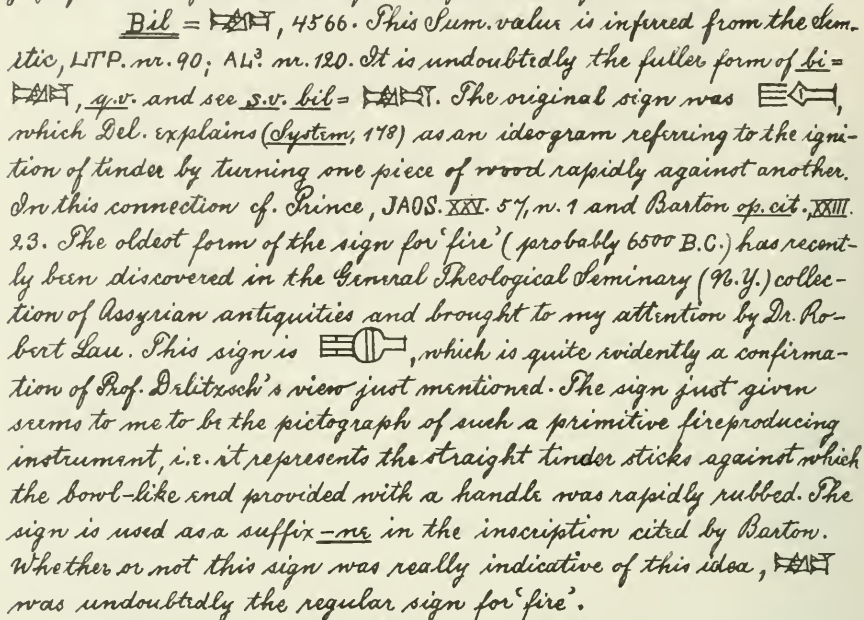 Bil = , 4566. This Sum. value is inferred from the Sem-
itic, LTP. nr. 90; AL³. nr. 120. It is undoubtedly the fuller form of bi =
, q.v. and see s.v. bil = . The original sign was ,
which Del. explains (System, 178) as an ideogram referring to the igni-
tion of tinder by turning one piece of wood rapidly against another.
In this connection cf. Prince, JAOS. XXV. 57, n. 1 and Barton op. cit., XXIII.
23. The oldest form of the sign for 'fire' (probably 6500 B.C.) has recent-
ly been discovered in the General Theological Seminary (N.Y.) collec-
tion of Assyrian antiquities and brought to my attention by Dr. Ro-
bert Lau. This sign is , which is quite evidently a confirma-
tion of Prof. Delitzsch's view just mentioned. The sign just given
seems to me to be the pictograph of such a primitive fireproducing
instrument, i.e. it represents the straight tinder sticks against which
the bowl-like end provided with a handle was rapidly rubbed. The
sign is used as a suffix -ne in the inscription cited by Barton.
Whether or not this sign was really indicative of this idea,
was undoubtedly the regular sign for 'fire'.